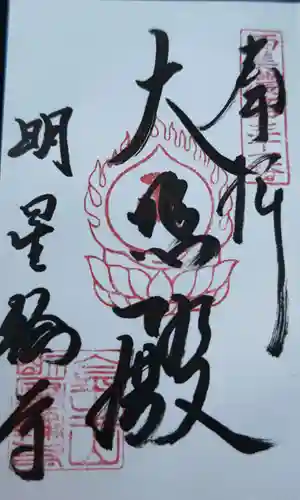 奉拝
大悲殿
明星輪寺